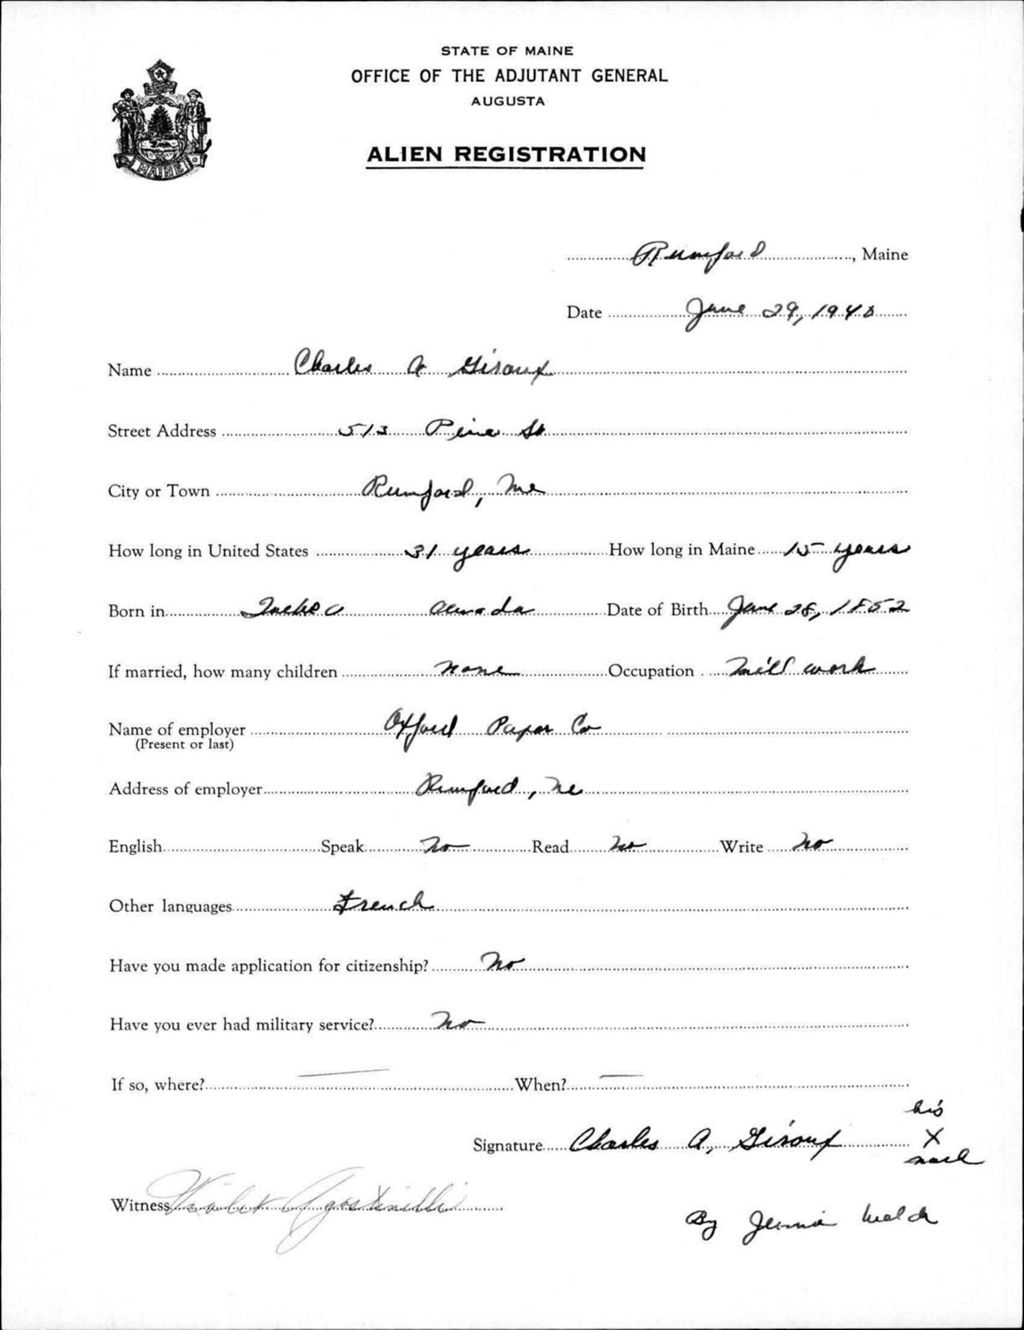 STATE OF MAINE
OFFICE OF THE ADJUTANT GENERAL
AUGUSTA
ALIEN REGISTRATION
MAINE
Rumford, Maine
Date June 29, 1940
Name Charles A Giroux
Street Address 513 Pine St
City or Town Rumford, Me
How long in United States 31 years How long in Maine 15 years
Born in Quebec Canada Date of Birth June 28, 1852
If married, how many children none Occupation Mill work
Name of employer Oxford Paper Co
(Present or last)
Address of employer Rumford, Me
English Speak No Read No Write No
Other languages French
Have you made application for citizenship? No
Have you ever had military service? No
If so, where? — When? —
his
Signature Charles A. Giroux X
mark
Witness Violet Agostinelli
By Jennie Welch